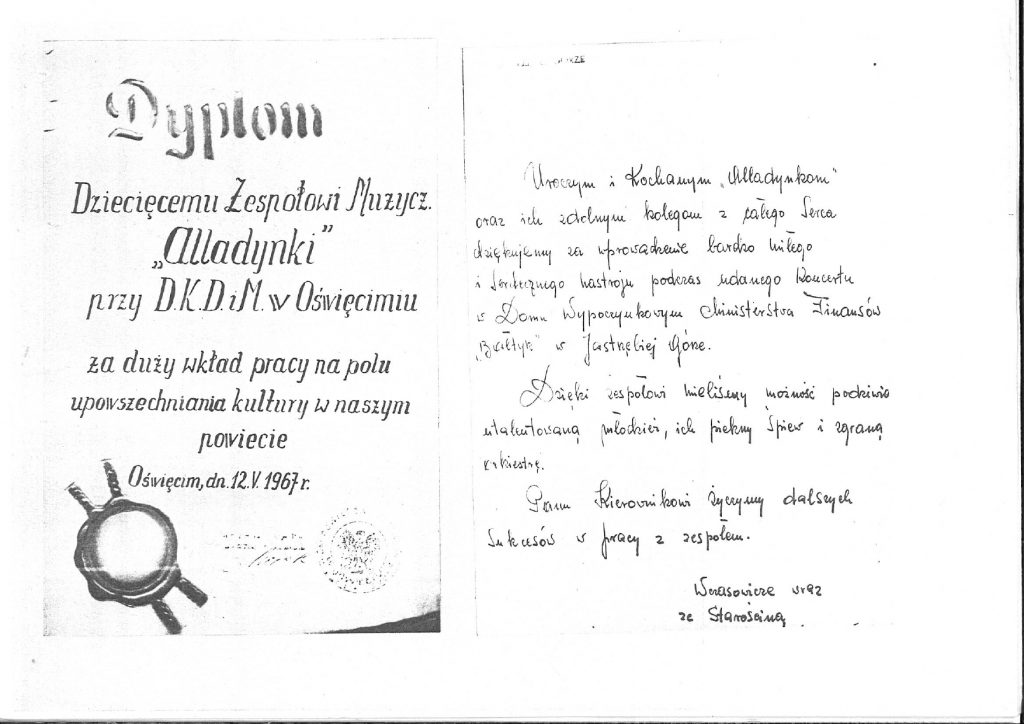 Dyplom
Dziecięcemu Zespołowi Muzycz.
„Alladynki”
przy D.K.D.iM. w Oświęcimiu
za duży wkład pracy na polu
upowszechniania kultury w naszym
powiecie
Oświęcim, dn. 12.V.1967 r.
Uroczym i Kochanym „Alladynkom”
oraz ich zdolnym kolegom z całego Serca
dziękujemy za wprowadzenie bardzo miłego
i serdecznego nastroju podczas udanego koncertu
w Domu Wypoczynkowym Ministerstwa Finansów
„Bałtyk” w Jastrzębiej Górze.
Dzięki zespołowi mieliśmy możność podziwia
utalentowaną młodzież, ich piękny Śpiew i zgraną
orkiestrę.
Panu Kierownikowi życzymy dalszych
Sukcesów w pracy z zespołem.
Wczasowicze wraz
ze Starościną